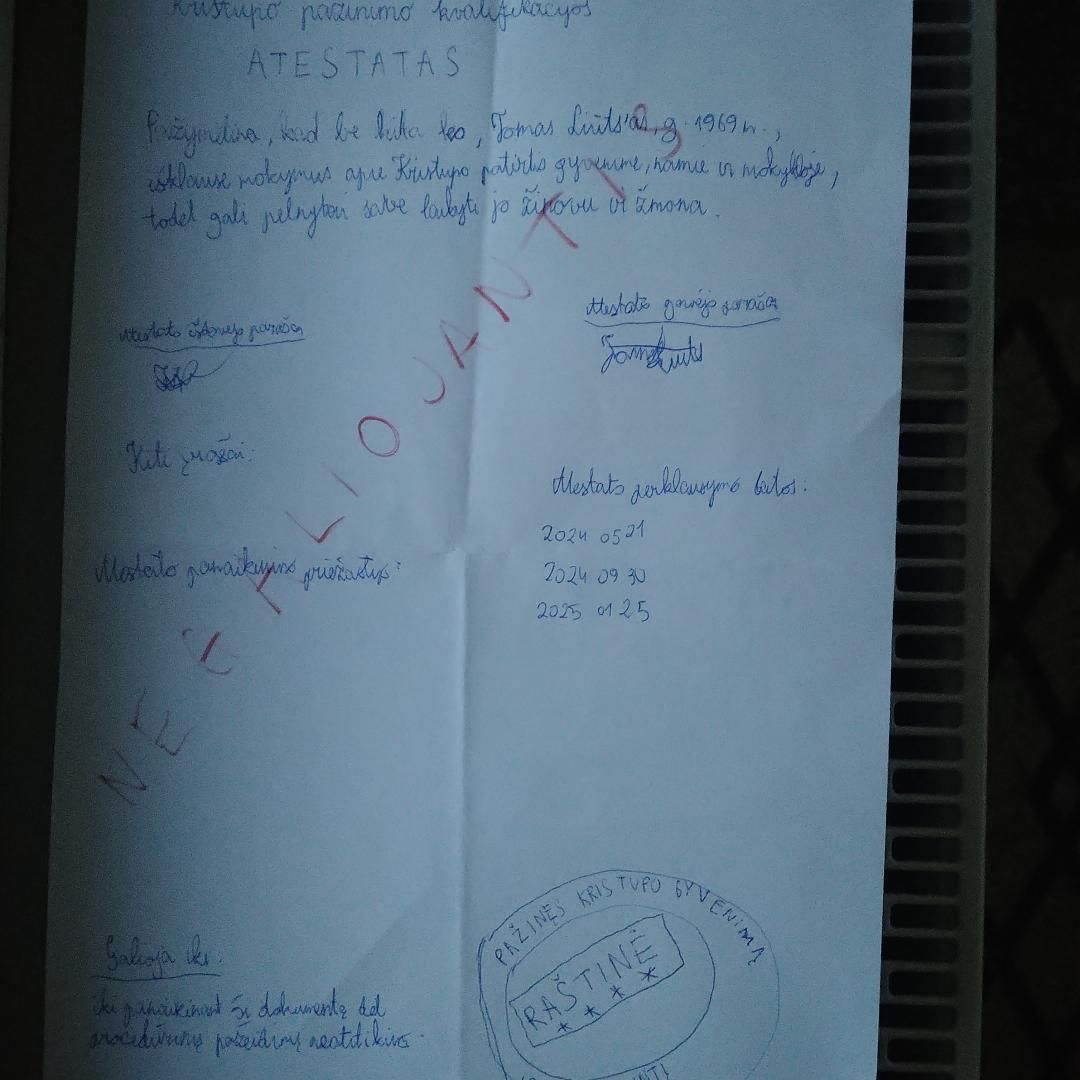 Kristupo pažinimo kvalifikacijos
ATESTATAS
Pažymėtina, kad be kita ko, Tomas g. 1969 m.,
išklausė mokymus apie Kristupo patirtis gyvenime, namie ir mokykloje,
todėl gali pelnytai save laikyti jo žinovu ir žmona.
Atestato išdavėjo parašas
Atestato gavėjo parašas
Kiti įrašai:
Atestato perklausymo datos:
2024 05 21
2024 09 30
2025 01 25
Atestato panaikinimo priežastys:
NEGALIOJANTIS
Galioja iki:
iki panaikinant šį dokumentą dėl
procedūrinių pažeidimų
PAŽINĘS KRISTUPO GYVENIMĄ
RAŠTINĖ
* * * *